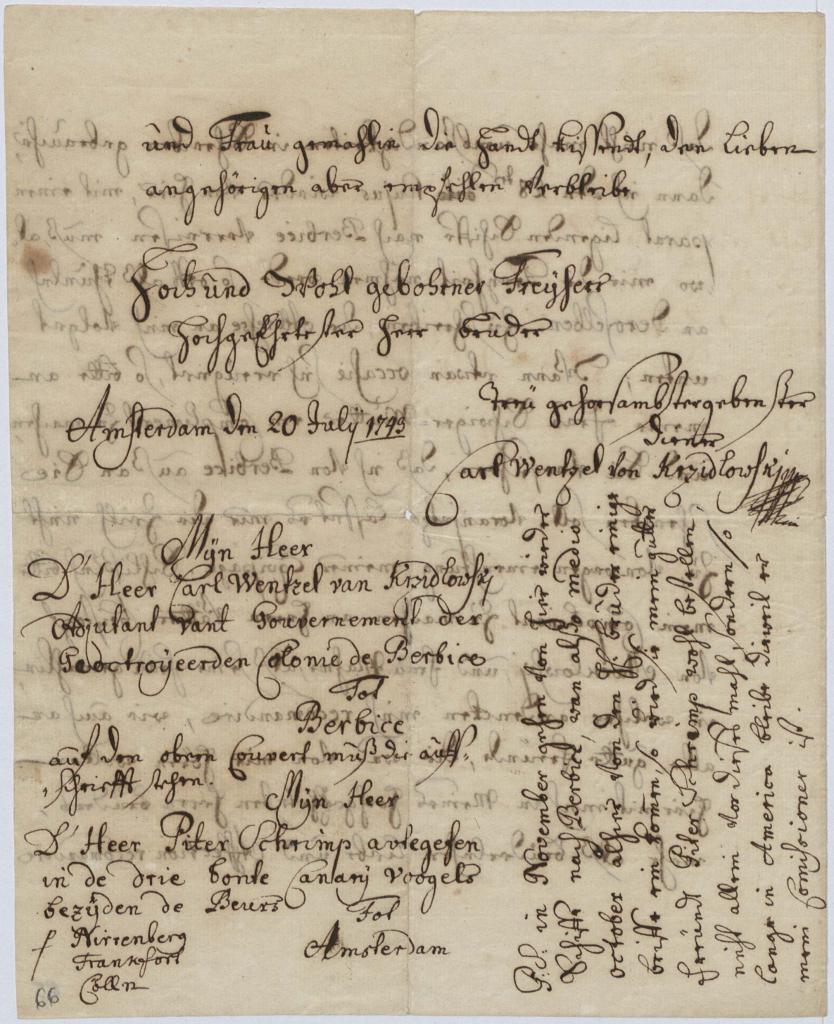 und Frau gemahlin die Handt kissendt, den lieben
angehörigen aber empfehlen verbleibe
Hoch und Wohl gebohrner Freyherr
HochgeEhrtester Herr bruder
Amsterdam den 20 Julÿ 1743
Treü gehorsambstergebenster
diener
Carl Wentzel von Krzidlowskj
Mÿn Heer
D'Heer Carl Wentzel van Krzidlowskj
Adjutant vant Gouvernement der
Geoctroyeerden Colonie de Berbice
Tot
Berbice
auf den obern Couvert muß die auff-
schrifft stehen.
Mÿn Heer
D'Heer Piter Schrimp avlegesen
in de drie bonte Canarÿ voogels
bezÿden de Beurs
Tot
Amsterdam
p Nirrenberg
Franckfort
Cölln
66
P:S: in November gehen von hier wieder
Schiffe nach Berbice, wan alßo medio
october alhier von den H: bruder einige
briffe ein komen, so wird sie mein gutter
freündt Piter Schrimp wohl bestellen,
nicht allein vor dieses mahl, sondern so
lange in America bleibe dieweil er
mein Comissioner ist.